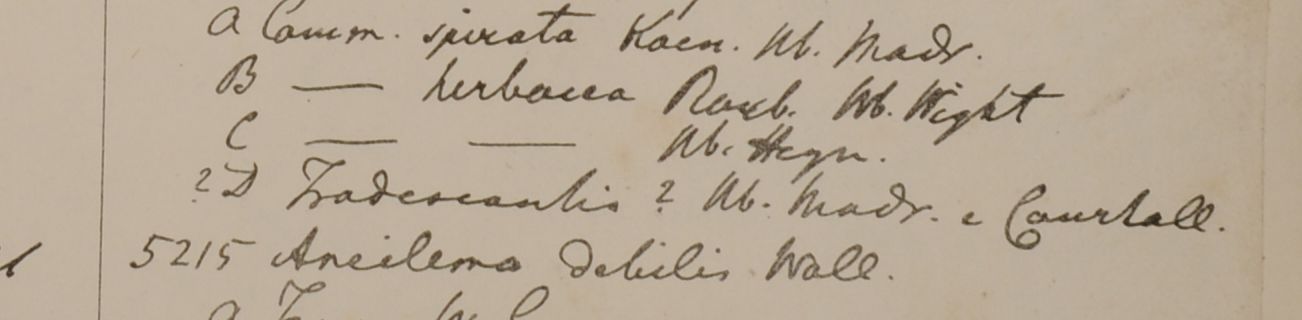 a Comm. spirata Koen. Hb. Madr.
B — herbacea Roxb. Hb. Wight
C — — Hb. Heyn.
? D Tradescantia ? Hb. Madr. e Courtall.
5215 Aneilema debilis Wall.
a